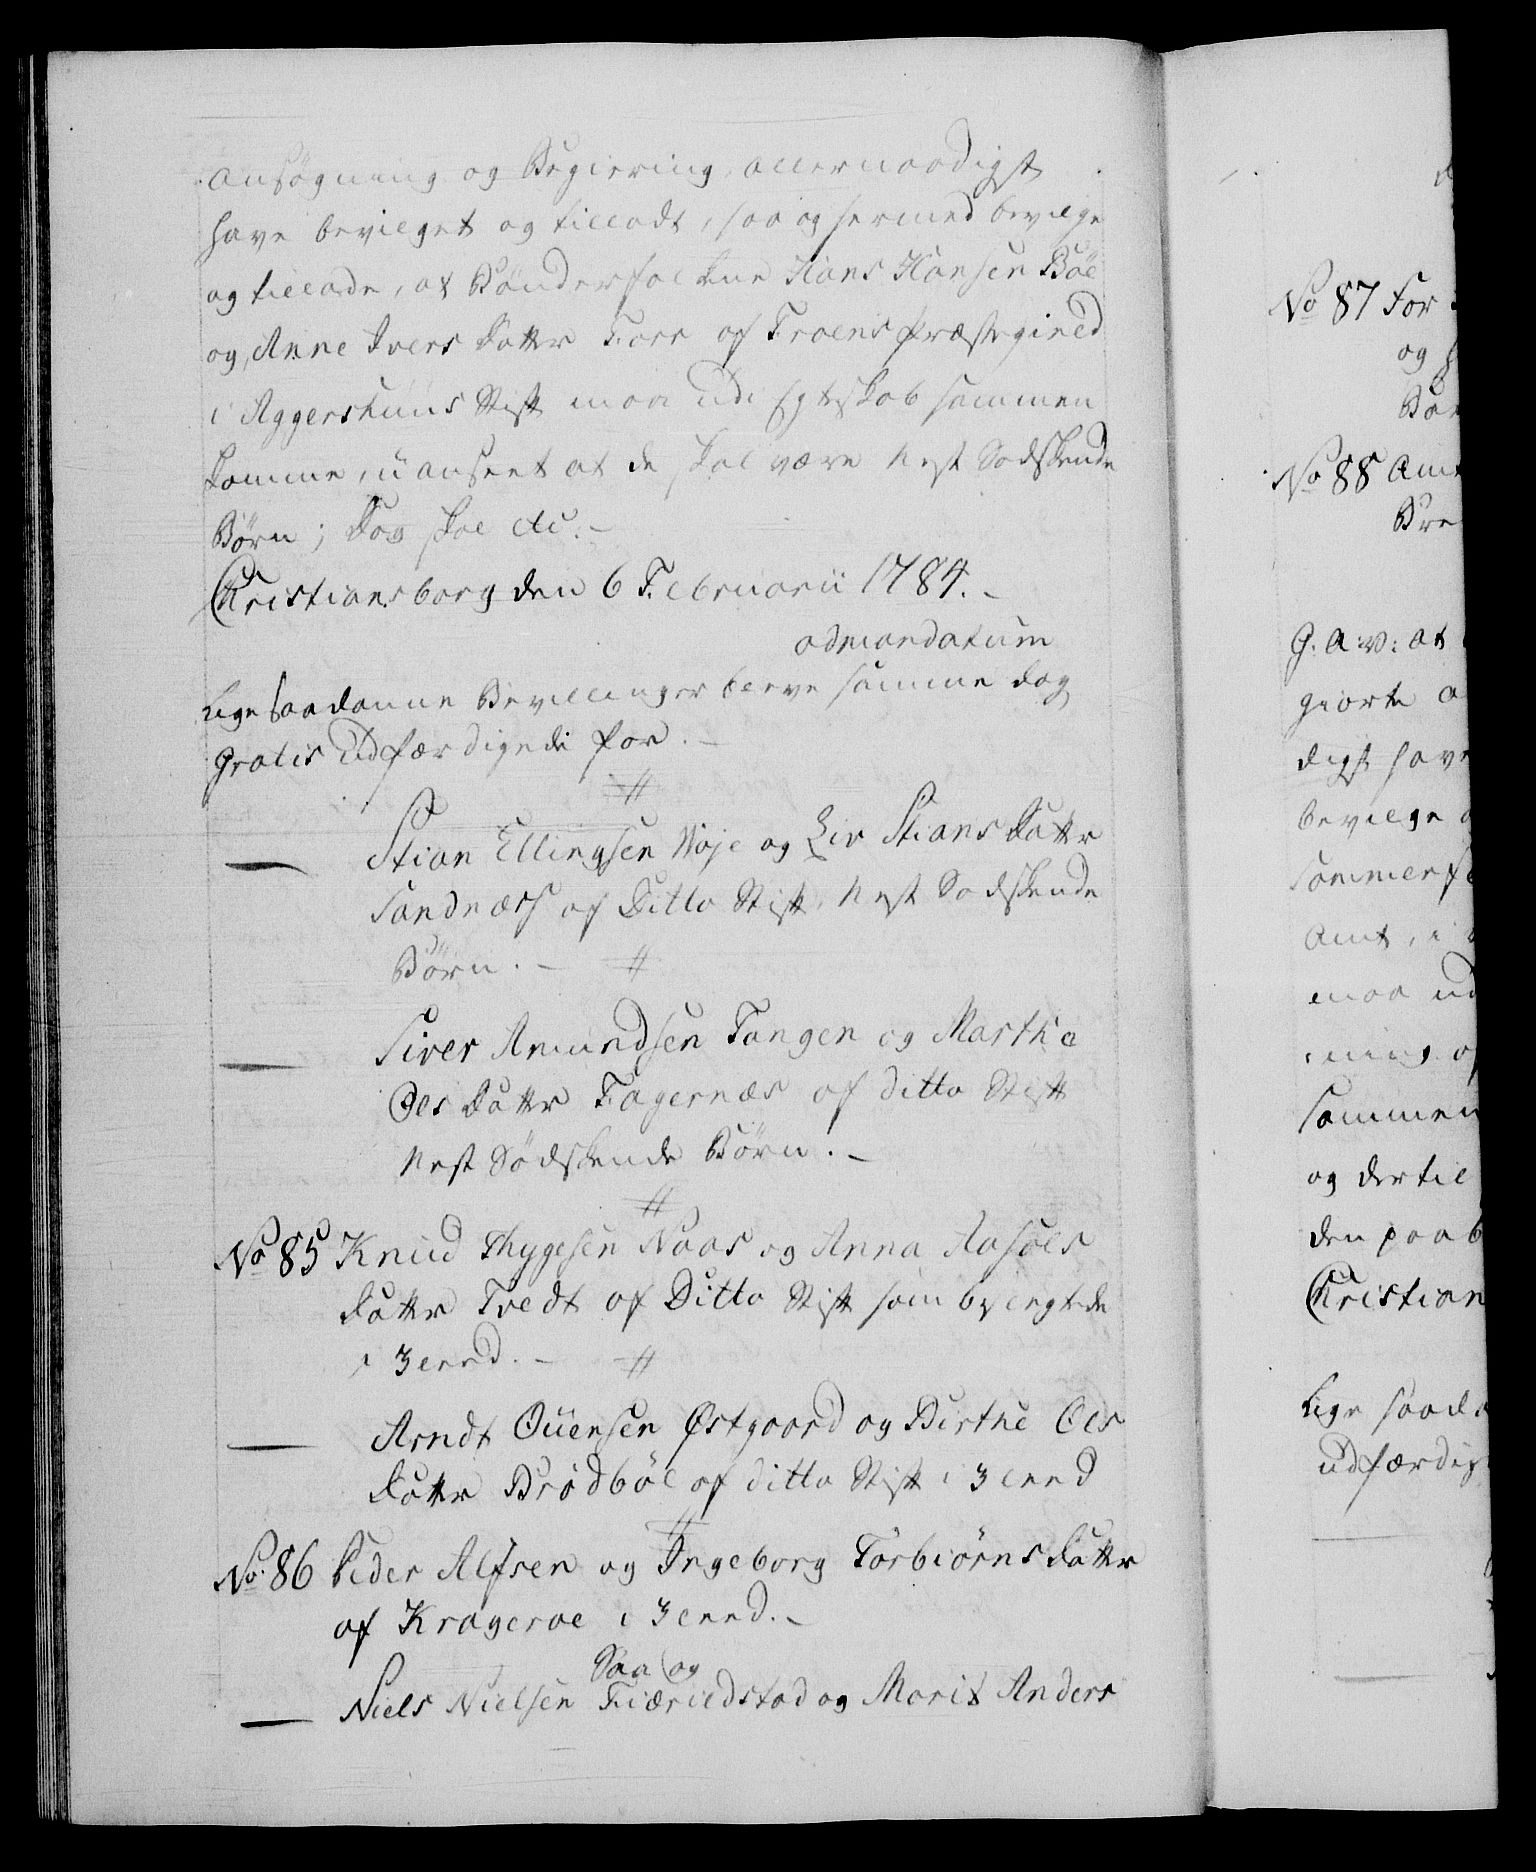 Ansøgning og Begiering, allernaadigst
have bevilget og tilladt, saa og hermed bevilge
og tillade, at Bønderfolkene Hans Hansen Bøe
og Anne Ivers Datter Forr af Froens Præstegield
i Aggershuus Stift maae udi Egteskab sammen
komme, uanseet at de skal være Nest Sødskende
Børn; Dog skal etc. -
Christiansborg den 6 Februarii 1784. -
ad mandatum
Lige saadanne Bevillinger bleve samme dag
Gratis Udfærdigede for. -
Stian Ellingsen Noje og Liv Stians Datter
Sandnæss af Ditto Stift, Nest Sødskende
Børn. -
Siver Amundsen Tangen og Marthe
Ols Datter Fagernæs af ditto Stift
Nest Sødskende Børn. -
No 85 Knud Thygesen Naas og Anna Aasuls
Datter Tvedt af Ditto Stift som besvogrede
i 3 leed. -
Arndt Ouensen Østgaard og Birthe Ols
Datter Brødbøl af ditto Stift i 3 leed
No. 86 Peder Alfsen og Ingeborg Torbiørns Datter
af Krageroe i 3 leed. -
Saa og
Niels Nielsen Fiærildstad og Marit Anders
No 87 For
og
No 88 Amt
G. A: V: at
giorte
digst have
bevilge
Amt, i
maa
sammen
og dertil
den paab
Christian
Lige saad
udfærdig